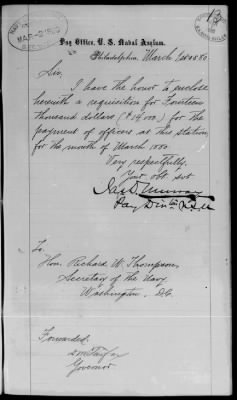 MAR 2 1880
Pay Office, U. S. Naval Asylum,
Philadelphia, March 1st 1880
Sir,
I have the honor to enclose
herewith a requisition for Fourteen
thousand dollars ($14,000) for the
payment of officers at this station
for the month of March 1880.
Very respectfully,
Your obt svt
Jas D Murray
Pay Dir U.S.N.
To
Hon. Richard W. Thompson,
Secretary of the Navy
Washington, D.C.
Forwarded:
Governor